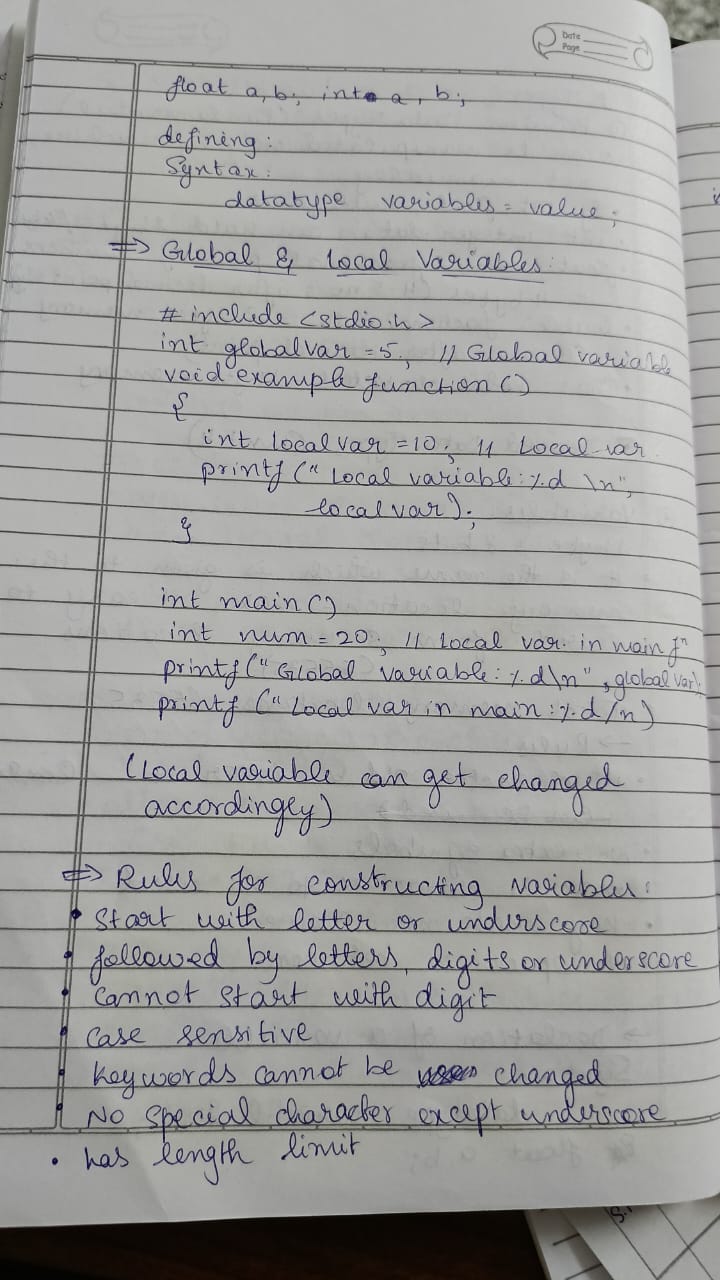 Date
Page
float a, b; int a, b;
defining:
Syntax:
datatype variables = value;
⇒ Global & Local Variables:
# include <stdio.h>
int globalvar = 5; // Global variable
void example function ()
{
int localvar = 10; // Local var
printf (" Local variable: %d \n",
localvar);
}
int main ()
int num = 20; // local var. in main fn
printf (" Global variable: %d\n", globalvar);
printf (" Local var in main: %d /n)
(Local variable can get changed
accordingly)
⇒ Rules for constructing variables:
• Start with letter or underscore
• followed by letters, digits or underscore
• cannot start with digit
• case sensitive
• keywords cannot be changed
• No special character except underscore
• has length limit